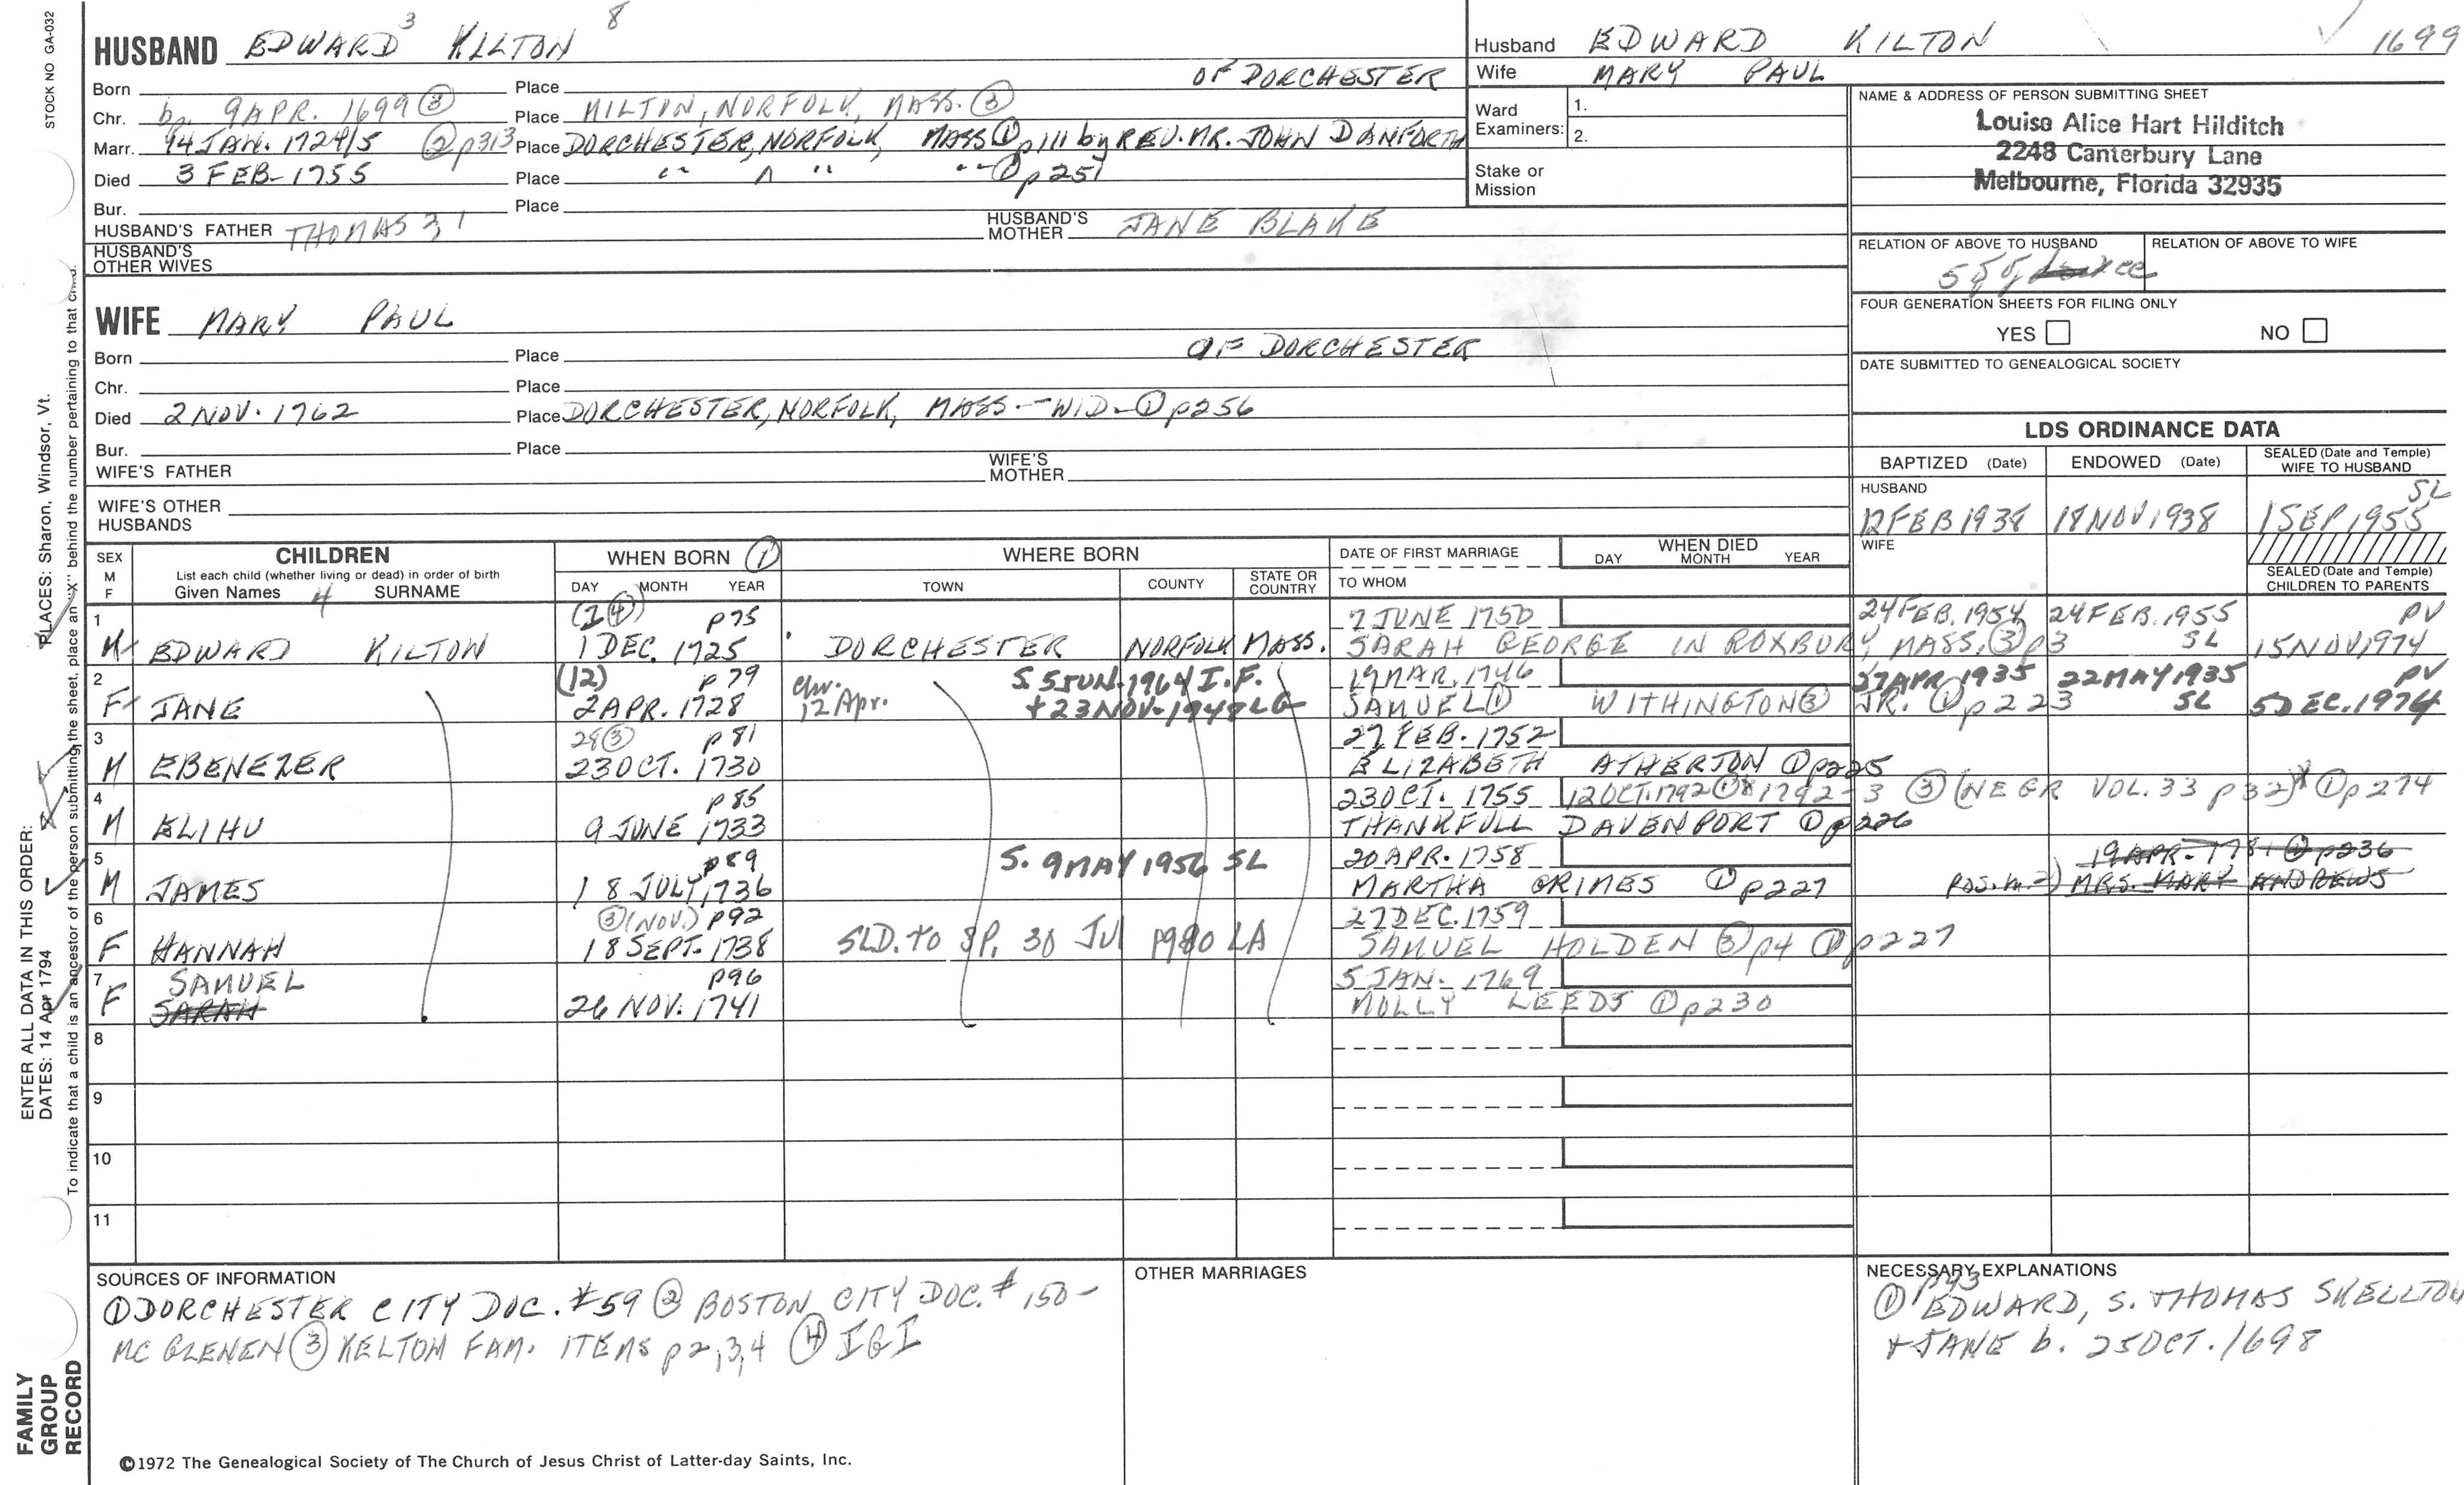 STOCK NO. GA-032
HUSBAND EDWARD 3 KILTON 8
OF DORCHESTER
Born Place
Chr. bp. 9 APR. 1699 ③ Place MILTON, NORFOLK, MASS. ③
Marr. 14 JAN. 1724/5 ② p313 Place DORCHESTER, NORFOLK, MASS ① p111 by REV. MR. JOHN DANFORTH
Died 3 FEB. 1755 Place " " " ① p251
Bur. Place
HUSBAND'S FATHER THOMAS HUSBAND'S MOTHER JANE BLAKE
HUSBAND'S OTHER WIVES
WIFE MARY PAUL
OF DORCHESTER
Born Place
Chr. Place
Died 2 NOV. 1762 Place DORCHESTER, NORFOLK, MASS. - WID - ① p256
Bur. Place
WIFE'S FATHER WIFE'S MOTHER
WIFE'S OTHER HUSBANDS
Husband EDWARD KILTON 1699
Wife MARY PAUL
Ward Examiners: 1.
2.
Stake or Mission
NAME & ADDRESS OF PERSON SUBMITTING SHEET
Louise Alice Hart Hilditch
2248 Canterbury Lane
Melbourne, Florida 32935
RELATION OF ABOVE TO HUSBAND RELATION OF ABOVE TO WIFE
FOUR GENERATION SHEETS FOR FILING ONLY
YES NO
DATE SUBMITTED TO GENEALOGICAL SOCIETY
LDS ORDINANCE DATA
BAPTIZED (Date) ENDOWED (Date) SEALED (Date and Temple) WIFE TO HUSBAND
HUSBAND SL
12 FEB 1938 18 NOV 1938 1 SEP 1955
WIFE
SEALED (Date and Temple) CHILDREN TO PARENTS
SEX M F CHILDREN WHEN BORN ① WHERE BORN DATE OF FIRST MARRIAGE WHEN DIED DAY MONTH YEAR
List each child (whether living or dead) in order of birth
Given Names 4 SURNAME DAY MONTH YEAR TOWN COUNTY STATE OR COUNTRY TO WHOM
1 p75 7 JUNE 1750 24 FEB. 1954 24 FEB. 1955 PV
M EDWARD KILTON 1 DEC. 1725 DORCHESTER NORFOLK MASS. SARAH GEORGE IN ROXBURY, MASS. ③ p3 SL 15 NOV 1974
2 (12) p79 chr. S. 5 JUN. 1964 I.F. 19 MAR. 1746 27 APR 1935 22 MAY 1935 PV
F JANE 2 APR. 1728 12 Apr. + 23 NOV. 1948 LG SAMUEL ① WITHINGTON ③ JR. ① p223 SL 5 DEC. 1974
3 28 ③ p81 27 FEB. 1752
M EBENEZER 23 OCT. 1730 ELIZABETH ATHERTON ① p225
4 p85 23 OCT. 1755 12 OCT. 1792 ① 1792-3 ③ (NEGR VOL. 33 p32) ① p274
M ELIHU 9 JUNE 1733 THANKFULL DAVENPORT ① p226
5 p89 S. 9 MAY 1956 SL 20 APR. 1758 19 APR. 1781 p236
M JAMES 18 JULY 1736 MARTHA GRIMES ① p227 pos. m. 2) MRS. MARY ANDREWS
6 ③ (NOV.) p92 27 DEC. 1759
F HANNAH 18 SEPT. 1738 SLD. TO SP. 30 JUL 1980 LA SAMUEL HOLDEN ③ p4 ① p227
7 SAMUEL p96 5 JAN. 1769
F SARAH 26 NOV. 1741 MOLLY LEEDS ① p230
8
9
10
11
SOURCES OF INFORMATION
① DORCHESTER CITY DOC. #59 ② BOSTON CITY DOC. # 150 -
MC GLENEN ③ KELTON FAM. ITEMS p2,3,4 ④ IGI
OTHER MARRIAGES
NECESSARY EXPLANATIONS
① p43 EDWARD, S. THOMAS SKELLTON
+ JANE b. 25 OCT. 1698
©1972 The Genealogical Society of The Church of Jesus Christ of Latter-day Saints, Inc.
FAMILY GROUP RECORD
ENTER ALL DATA IN THIS ORDER:
DATES: 14 Apr 1794 PLACES: Sharon, Windsor, Vt.
To indicate that a child is an ancestor of the person submitting the sheet, place an "X" behind the number pertaining to that child.